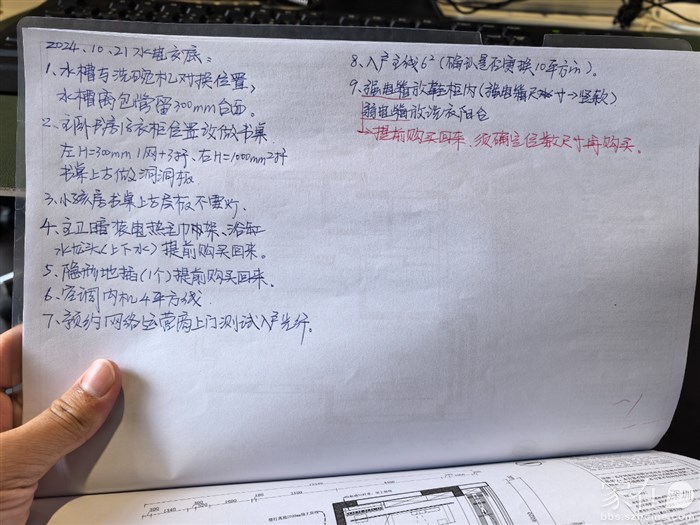 2024.10.21水电交底:
1、水槽与洗碗机对换位置,
水槽离包管留300mm台面。
2、主卧书房区衣柜位置改做书桌
左H=300mm 1网+3插、右H=1000mm2插
书桌上方做洞洞板
3、小孩房书桌上方层板不要灯.
4、主卫暗装电热毛巾架、浴缸
水龙头(上下水)提前购买回来。
5、隐形地插(1个)提前购买回来.
6、空调内机4平方线.
7、预约网络运营商上门测试入户光纤。
8、入户主线6²(确认是否更换10平方㎡)。
9、强电箱放鞋柜内(强电箱尺寸→竖款)
弱电箱放洗衣阳台
→提前购买回来、须确定位数尺寸再购买。
bbs.sz